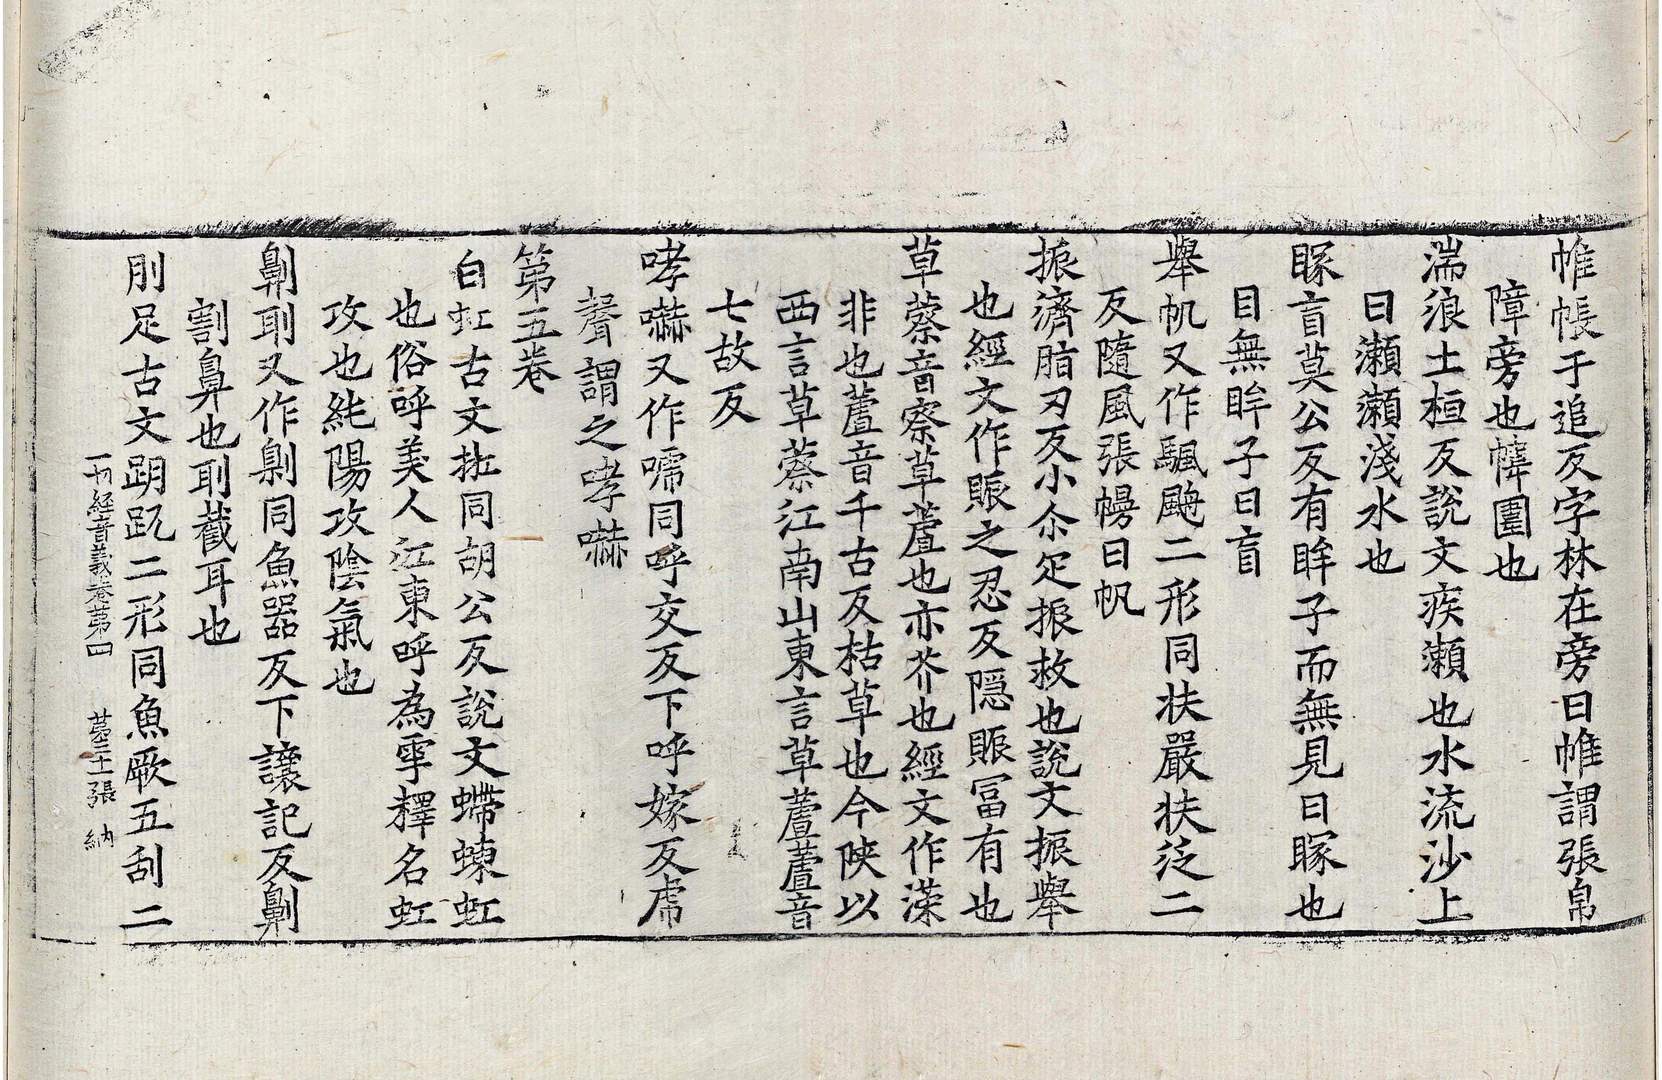 帷帳于追反字林在旁曰帷謂張帛
障旁也幃圍也
湍浪土桓反說文疾瀨也水流沙上
曰瀨瀨淺水也
矇盲莫公反有眸子而無見曰矇也
目無眸子曰盲
舉帆又作颿䫻二形同扶嚴扶泛二
反隨風張幔曰帆
振濟脂刃反小尒疋振救也說文振舉
也經文作賑之忍反隱賑冨有也
草蔡音察草蘆也亦芥也經文作㵕
非也蘆音千古反枯草也今陜以
西言草蔡江南山東言草蘆蘆音
七故反
哮嚇又作唬同呼交反下呼嫁反虎
聲謂之哮嚇
第五卷
白虹古文𧈫同胡公反說文螮蝀虹
也俗呼美人江東呼為雩釋名虹
攻也純陽攻陰氣也
劓刵又作㓷同魚器反下讓記反劓
割鼻也刵截耳也
刖足古文跀𧿁二形同魚厥五刮二
一切經音義卷第四 苐二十張 納